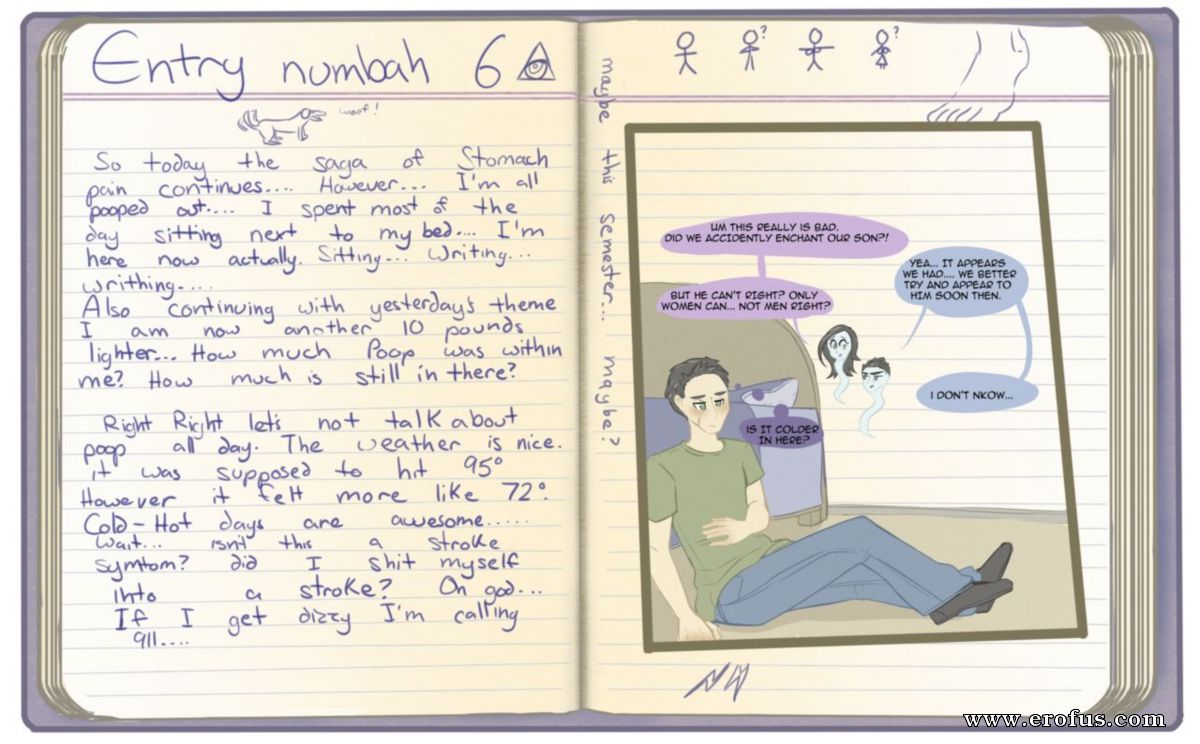 Entry numbah 6
woof!
So today the saga of Stomach
pain continues.... However... I'm all
pooped out.... I spent most of the
day sitting next to my bed.... I'm
here now actually. Sitting... Writing...
writhing....
Also continuing with yesterday's theme
I am now another 10 pounds
lighter... How much Poop was within
me? How much is still in there?
Right Right let's not talk about
poop all day. The weather is nice.
it was supposed to hit 95°
However it felt more like 72°.
Cold-Hot days are awesome.....
wait... isn't this a stroke
symtom? did I shit myself
into a stroke? Oh god...
If I get dizzy I'm calling
911....
maybe this semester... maybe?
? ?
UM THIS REALLY IS BAD.
DID WE ACCIDENTLY ENCHANT OUR SON?!
YEA... IT APPEARS
WE HAD.... WE BETTER
TRY AND APPEAR TO
HIM SOON THEN.
BUT HE CAN'T RIGHT? ONLY
WOMEN CAN... NOT MEN RIGHT?
I DON'T NKOW...
IS IT COLDER
IN HERE?
www.erofus.com